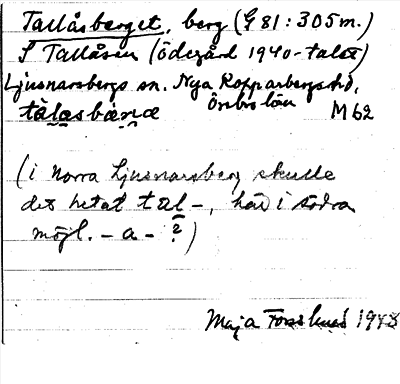 Tallåsberget, berg (G 81 : 305 m.)
S Tallåsen (ödegård 1940-talet)
Ljusnarsbergs sn. Nya Kopparbergs hd,
Örebro län
M 62
(i norra Ljusnarsberg skulle
det hetat tal-, här i södra
möjl. - a - ?)
Maja 1948